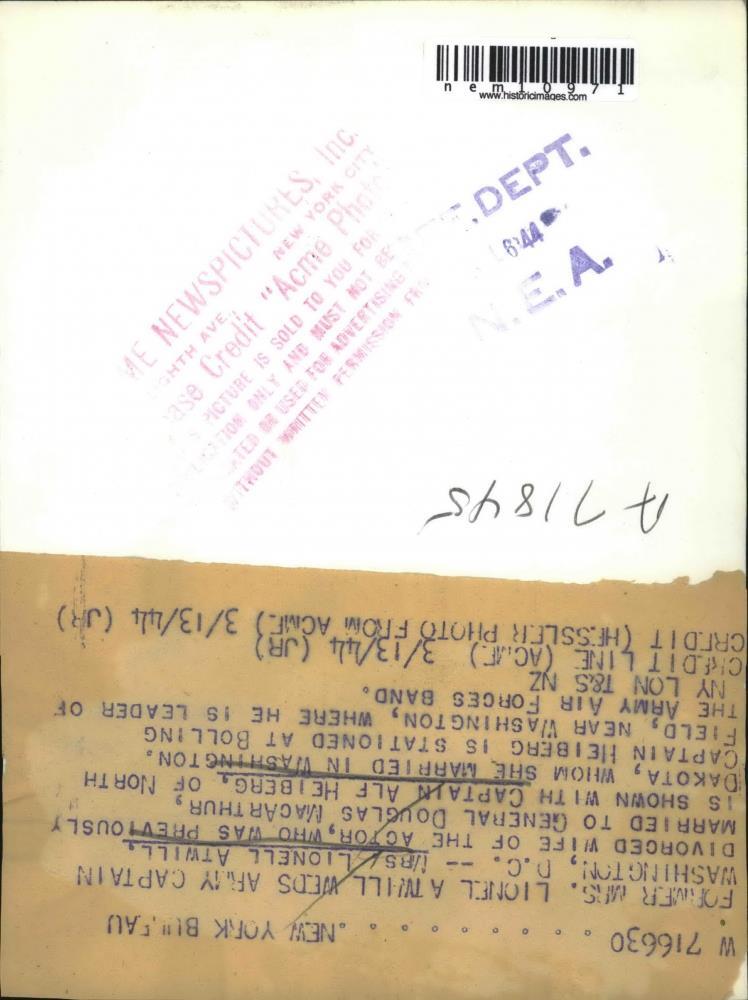 nem10971
www.historicimages.com
ME NEWSPICTURES, Inc.
GHTH AVE., NEW YORK CITY
ase Credit "Acme Photo
PICTURE IS SOLD TO YOU FOR
ONLY AND MUST NOT BE
OR USED FOR ADVERTISING
WITHOUT WRITTEN PERMISSION
DEPT.
6 '44
N.E.A.
A 71845
W 716630 . . . . . . . . . NEW YORK BUREAU
FORMER MRS. LIONEL ATWILL WEDS ARMY CAPTAIN
WASHINGTON, D.C. -- MRS LIONELL ATWILL,
DIVORCED WIFE OF THE ACTOR, WHO WAS PREVIOUSLY
MARRIED TO GENERAL DOUGLAS MACARTHUR,
IS SHOWN WITH CAPTAIN ALF HEIBERG, OF NORTH
DAKOTA, WHOM SHE MARRIED IN WASHINGTON.
CAPTAIN HEIBERG IS STATIONED AT BOLLING
FIELD, NEAR WASHINGTON, WHERE HE IS LEADER OF
THE ARMY AIR FORCES BAND.
NY LON T&S NZ
CREDIT LINE (ACME) 3/13/44 (JR)
CREDIT (HESSLER PHOTO FROM ACME) 3/13/44 (JR)